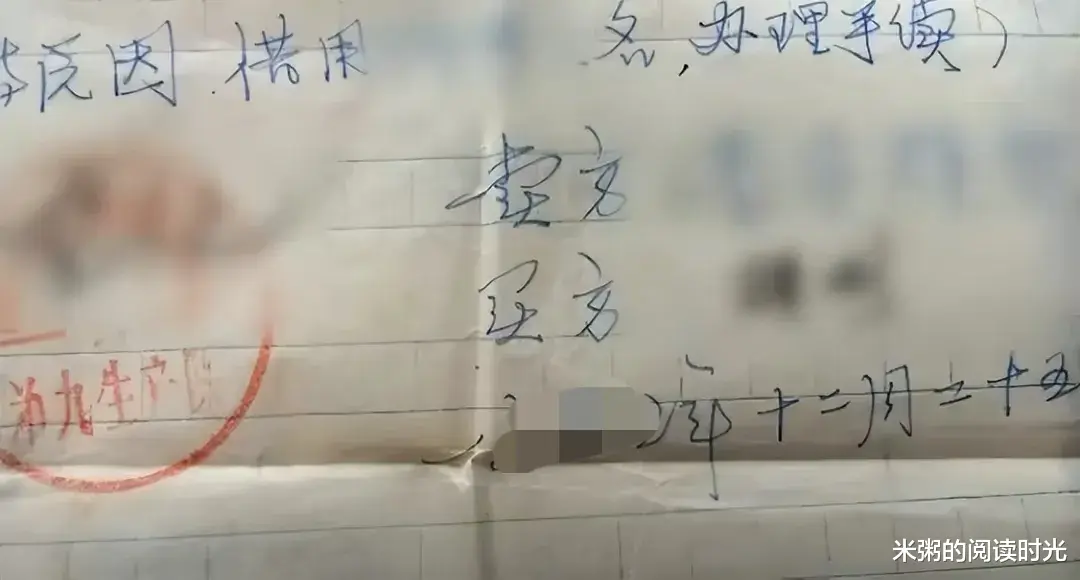 因借用 名,办理手续)
卖方
买方
年十二月二十五
第九生产
米粥的阅读时光